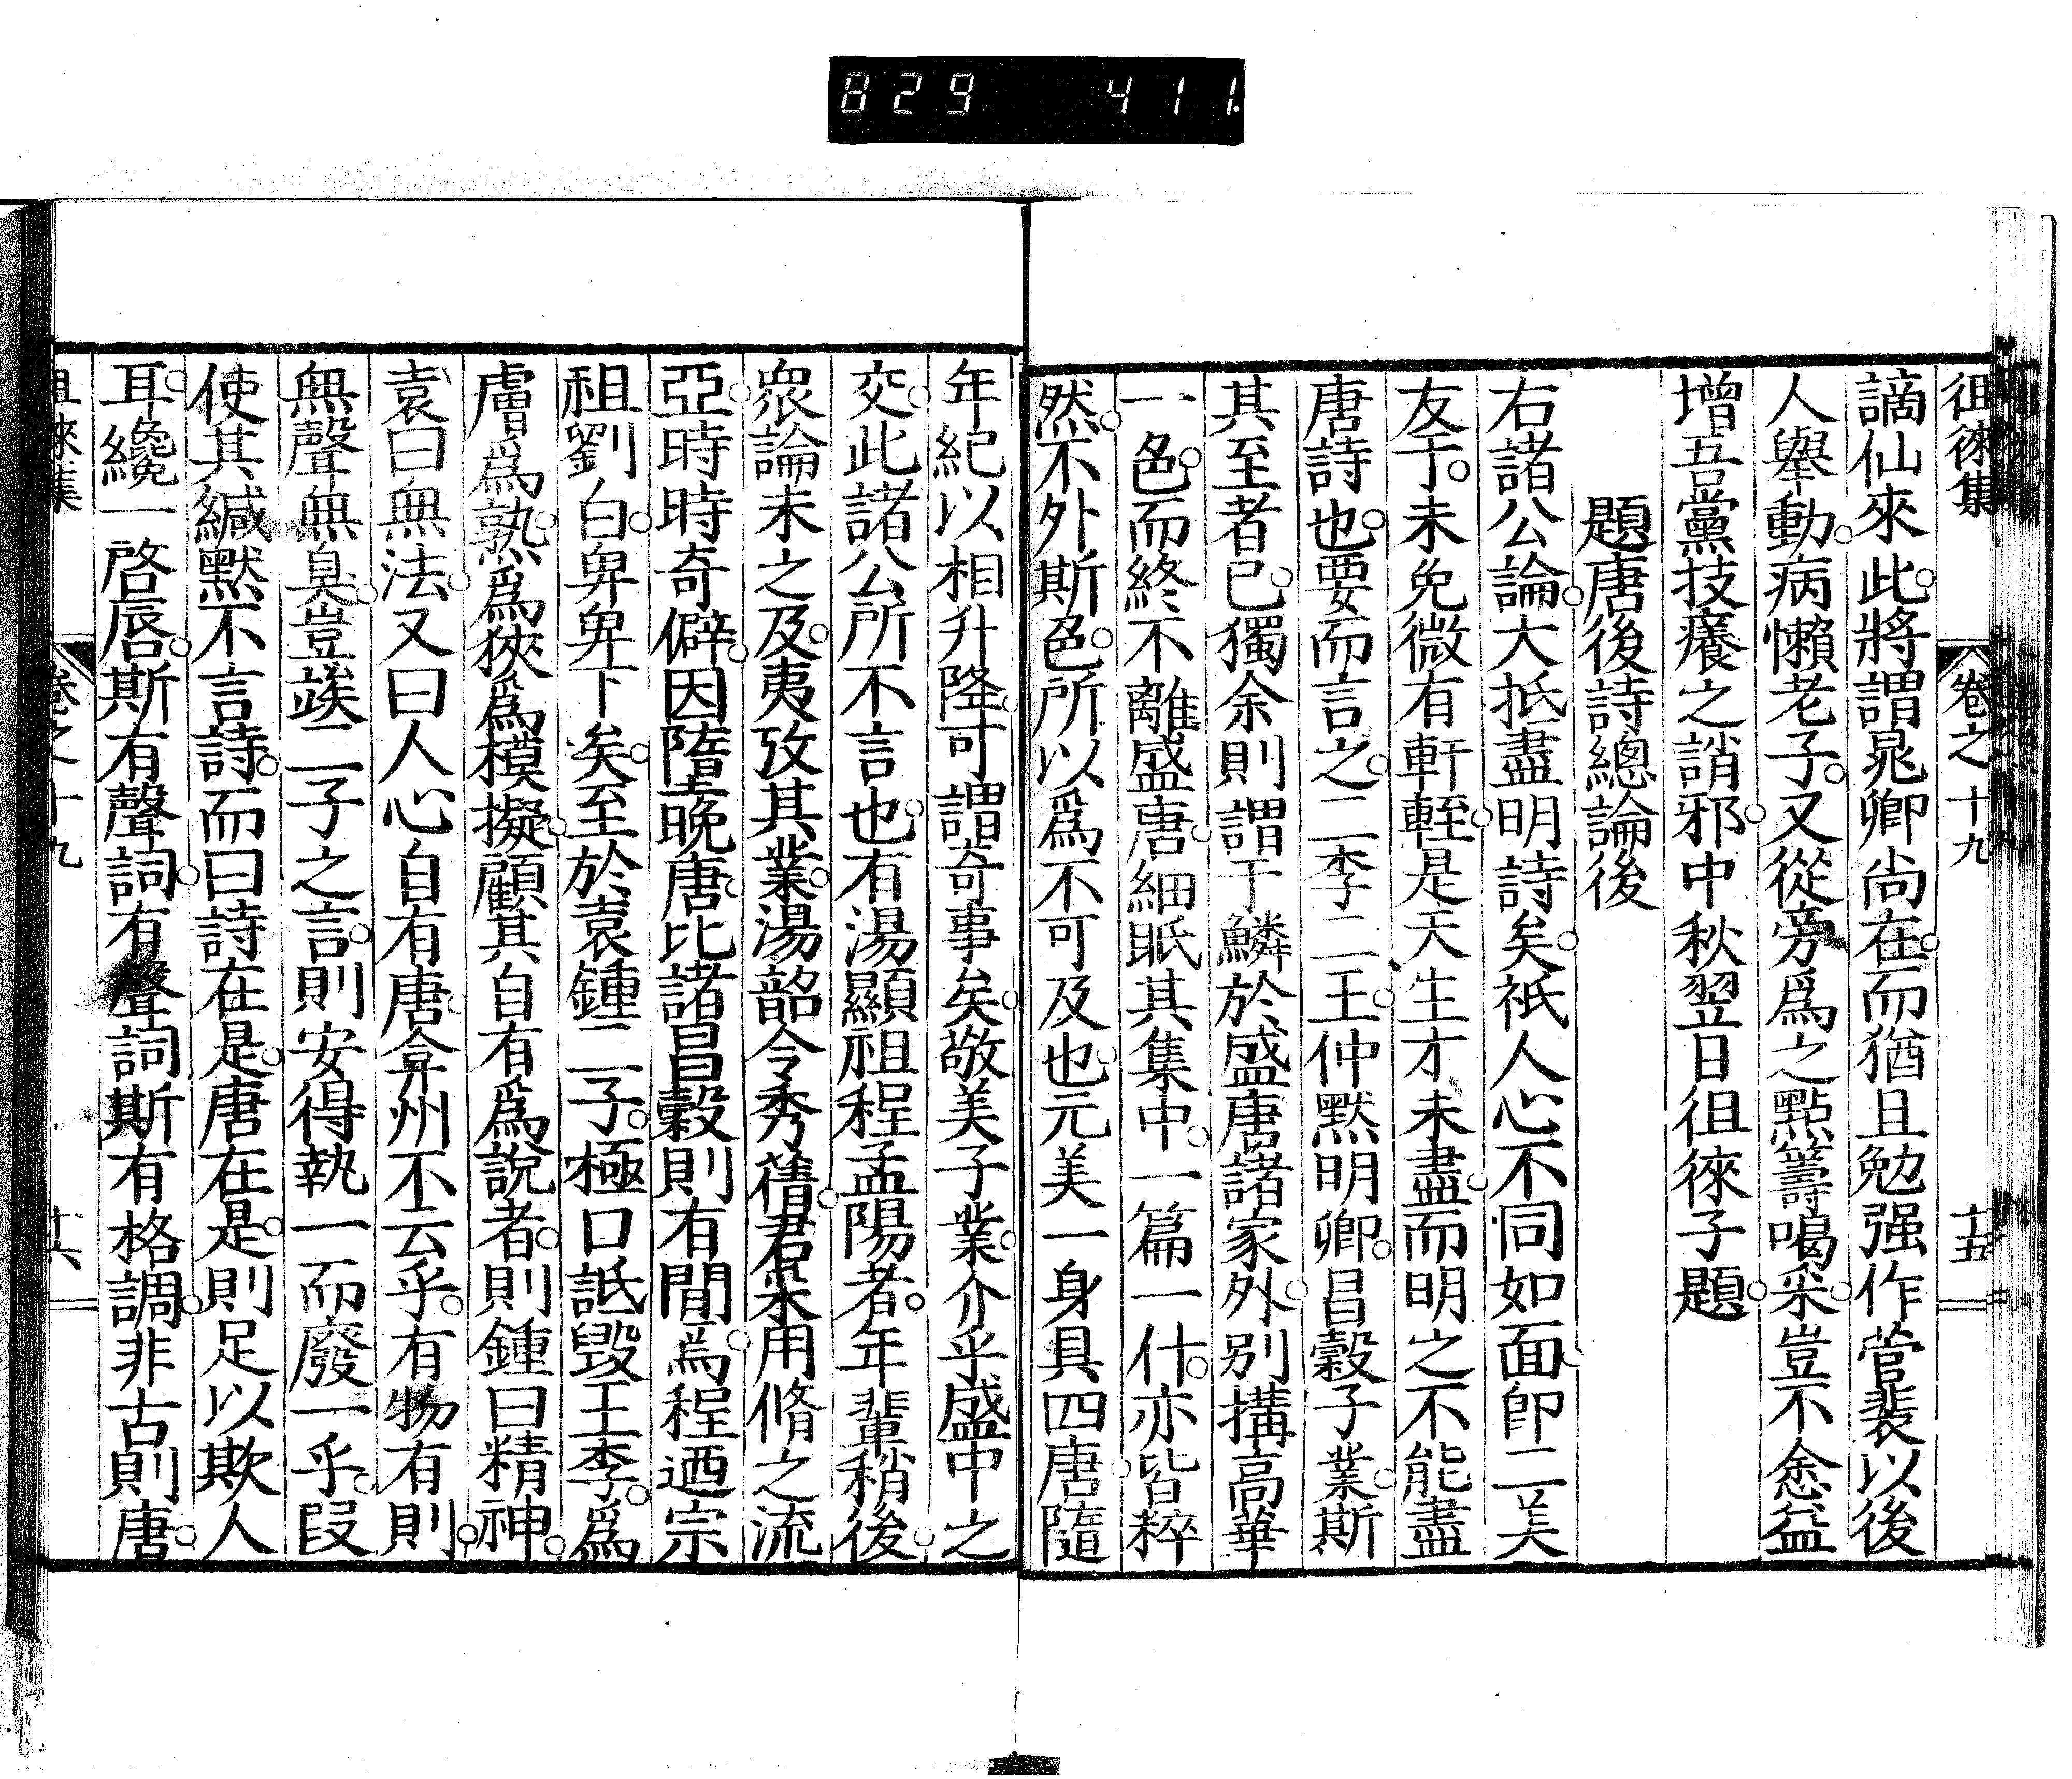 829 411.
徂徠集 卷之十九 十五
謫仙來此。將謂晁卿尚在。而猶且勉强作菅裴以後
人舉動。病懶老子。又從旁爲之點籌喝采。豈不愈益
增吾黨技癢之誚邪。中秋翌日徂徠子題。
題唐後詩總論後
右諸公論。大抵盡明詩矣。祇人心不同如面。卽二美
友于。未免微有軒輊。是天生才未盡。而明之不能盡
唐詩也。要而言之。二李二王。仲默明卿。昌穀子業。斯
其至者已。獨余則謂于鱗於盛唐諸家外。別搆高華
一色。而終不離盛唐。細眂其集中。一篇一什。亦皆粹
然。不外斯色。所以爲不可及也。元美一身具四唐。隨
年紀以相升降。可謂奇事矣。敬美子業。介乎盛中之
交。此諸公所不言也。有湯顯祖程孟陽者。年輩稍後。
衆論未之及。夷攷其業。湯韶令秀蒨。君采用脩之流
亞。時時奇僻。因墮晚唐。比諸昌穀則有間焉。程迺宗
祖劉白。卑卑下矣。至於袁鍾二子。極口詆毀王李。爲
膚爲熟。爲狹爲模擬。顧其自有爲說者。則鍾曰精神。
袁曰無法。又曰人心自有唐。弇州不云乎。有物有則。
無聲無臭。豈竢二子之言。則安得執一而廢一乎。叚
使其緘默不言詩。而曰詩在是。唐在是。則足以欺人
耳。纔一啓唇。斯有聲詞。有聲詞斯有格調。非古則唐。
徂徠集 卷之十九 十六